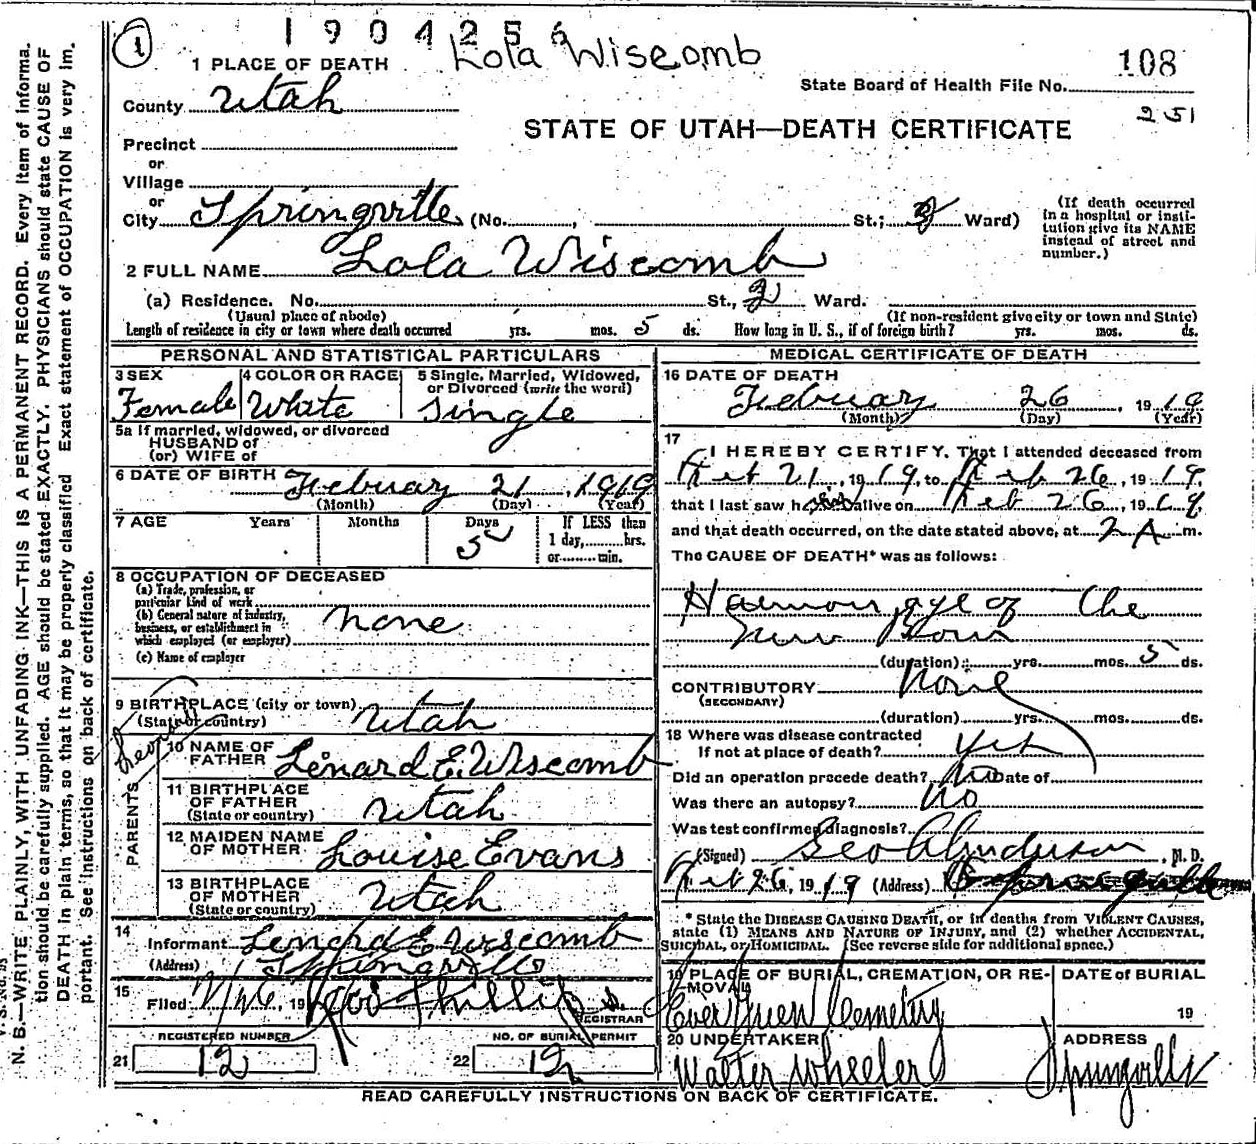 1904256
1
Lola Wiscomb
108
1 PLACE OF DEATH
State Board of Health File No.
County Utah
251
STATE OF UTAH—DEATH CERTIFICATE
Precinct
or
Village
or
City Springville (No. , St.; 2 Ward)
(If death occurred
in a hospital or insti-
tution give its NAME
instead of street and
number.)
2 FULL NAME Lola Wiscomb
(a) Residence. No. St., 2 Ward.
(Usual place of abode) (If non-resident give city or town and State)
Length of residence in city or town where death occurred yrs. mos. 5 ds. How long in U. S., if of foreign birth? yrs. mos. ds.
PERSONAL AND STATISTICAL PARTICULARS
3 SEX
Female
4 COLOR OR RACE
White
5 Single, Married, Widowed,
or Divorced (write the word)
Single
5a If married, widowed, or divorced
HUSBAND of
(or) WIFE of
6 DATE OF BIRTH February 21, 1919
(Month) (Day) (Year)
7 AGE Years Months Days If LESS than
5 1 day, hrs.
or min.
8 OCCUPATION OF DECEASED
(a) Trade, profession, or
particular kind of work
(b) General nature of industry,
business, or establishment in
which employed (or employer)
none
(c) Name of employer
9 BIRTHPLACE (city or town)
(State or country) Utah
Leonard
PARENTS
10 NAME OF
FATHER Lenard E. Wiscomb
11 BIRTHPLACE
OF FATHER
(State or country) Utah
12 MAIDEN NAME
OF MOTHER Louise Evans
13 BIRTHPLACE
OF MOTHER
(State or country) Utah
14
Informant Lenard E. Wiscomb
(Address) Springville
15
Filed , 19 Phillips
REGISTRAR
REGISTERED NUMBER
21 12
NO. OF BURIAL PERMIT
22 12
MEDICAL CERTIFICATE OF DEATH
16 DATE OF DEATH
February 26, 1919
(Month) (Day) (Year)
17
I HEREBY CERTIFY, That I attended deceased from
Feb 21, 1919, to Feb 26, 1919,
that I last saw her alive on Feb 26, 1919,
and that death occurred, on the date stated above, at 2 A m.
The CAUSE OF DEATH* was as follows:
Haemorrage of the
New Born
(duration) yrs. mos. 5 ds.
CONTRIBUTORY None
(SECONDARY)
(duration) yrs. mos. ds.
18 Where was disease contracted
If not at place of death? yes
Did an operation precede death? no Date of
Was there an autopsy? No
Was test confirmed diagnosis?
(Signed) Geo Anderson, M. D.
Feb 26, 1919 (Address) Springville
* State the DISEASE CAUSING DEATH, or in deaths from VIOLENT CAUSES,
state (1) MEANS AND NATURE OF INJURY, and (2) whether ACCIDENTAL,
SUICIDAL, or HOMICIDAL. (See reverse side for additional space.)
19 PLACE OF BURIAL, CREMATION, OR RE-
MOVAL
Ever Green Cemetery
DATE of BURIAL
19
20 UNDERTAKER
Walter Wheeler
ADDRESS
Springville
READ CAREFULLY INSTRUCTIONS ON BACK OF CERTIFICATE.
N. B.—WRITE PLAINLY, WITH UNFADING INK—THIS IS A PERMANENT RECORD. Every item of informa-
tion should be carefully supplied. AGE should be stated EXACTLY. PHYSICIANS should state CAUSE OF
DEATH in plain terms, so that it may be properly classified. Exact statement of OCCUPATION is very im-
portant. See instructions on back of certificate.